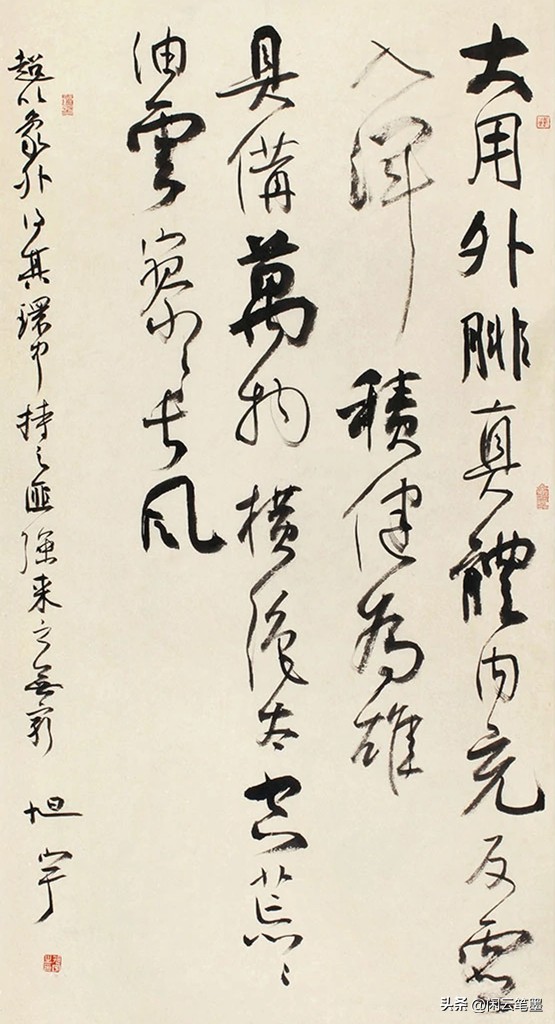 大用外腓真體内充反虛
入渾積健為雄
具備萬物橫絕太空荒〻
油雲寥〻長風
超以象外得其環中持之匪強来之無窮 旭宇
头条 @闲云笔墨